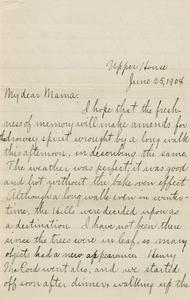 Upper House
June 25, 1908
My dear Mama:
I hope that the fresh-
ness of memory will make amends for
the drowsy spirit wrought by a long walk
this afternoon, in describing the same.
The weather was perfect; it was good
and hot without the bake oven effect
Although a long walk even in winter-
time, the Hill were decided upon as
a destination. I have not been there
since the trees were in leaf, so many
objects had a new appearance. Henry
McCord went also, and we started
off soon after dinner, walking up the